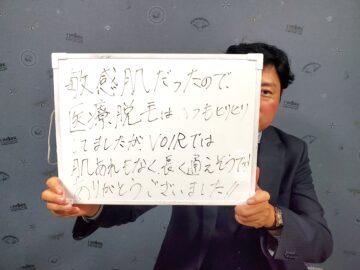 敏感肌だったので、
医療脱毛はいつもヒリヒリ
してましたがVOIRでは
肌あれもなく長く通えそうです!
ありがとうございました!!